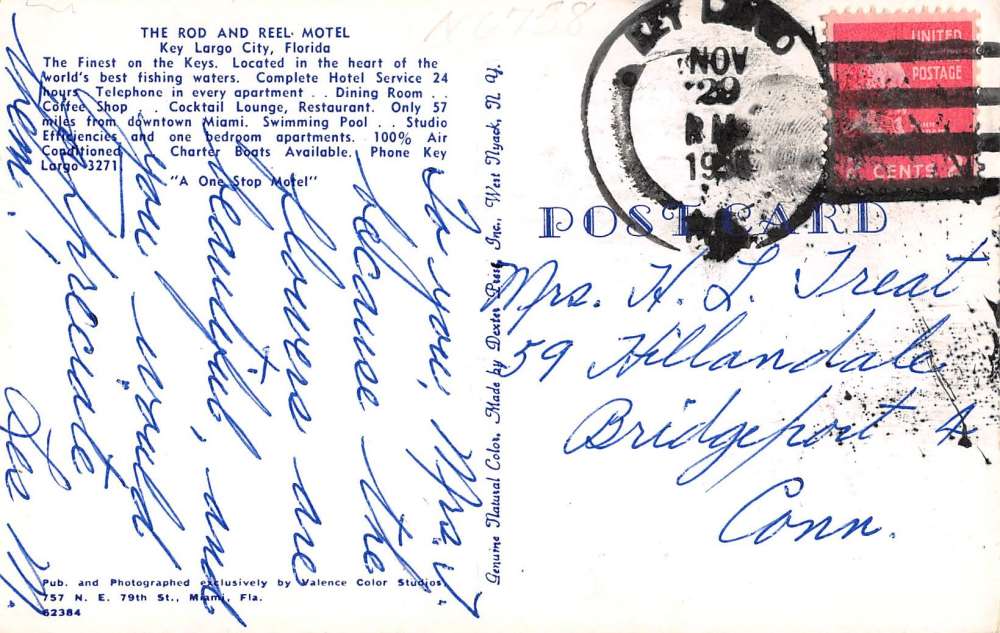 N6758
THE ROD AND REEL MOTEL
Key Largo City, Florida
The Finest on the Keys. Located in the heart of the
world's best fishing waters. Complete Hotel Service 24
hours Telephone in every apartment . . Dining Room . .
Coffee Shop . . Cocktail Lounge, Restaurant. Only 57
miles from downtown Miami. Swimming Pool . . Studio
Efficiencies and one bedroom apartments. 100% Air
Conditioned Charter Boats Available. Phone Key
Largo 3271
"A One Stop Motel"
To you, Mrs. T
because the
flowers are
beautiful, and
you would
appreciate
them!
Lee M.
Pub. and Photographed exclusively by Valence Color Studios,
757 N. E. 79th St., Miami, Fla.
62384
Genuine Natural Color, Made by Dexter Press, Inc., West Nyack, N. Y.
KEY LARGO
NOV
29
PM
UNITED
POSTAGE
CENTS
POST CARD
Mrs. H. L. Treat
59 Hillandale
Bridgeport 4
Conn.